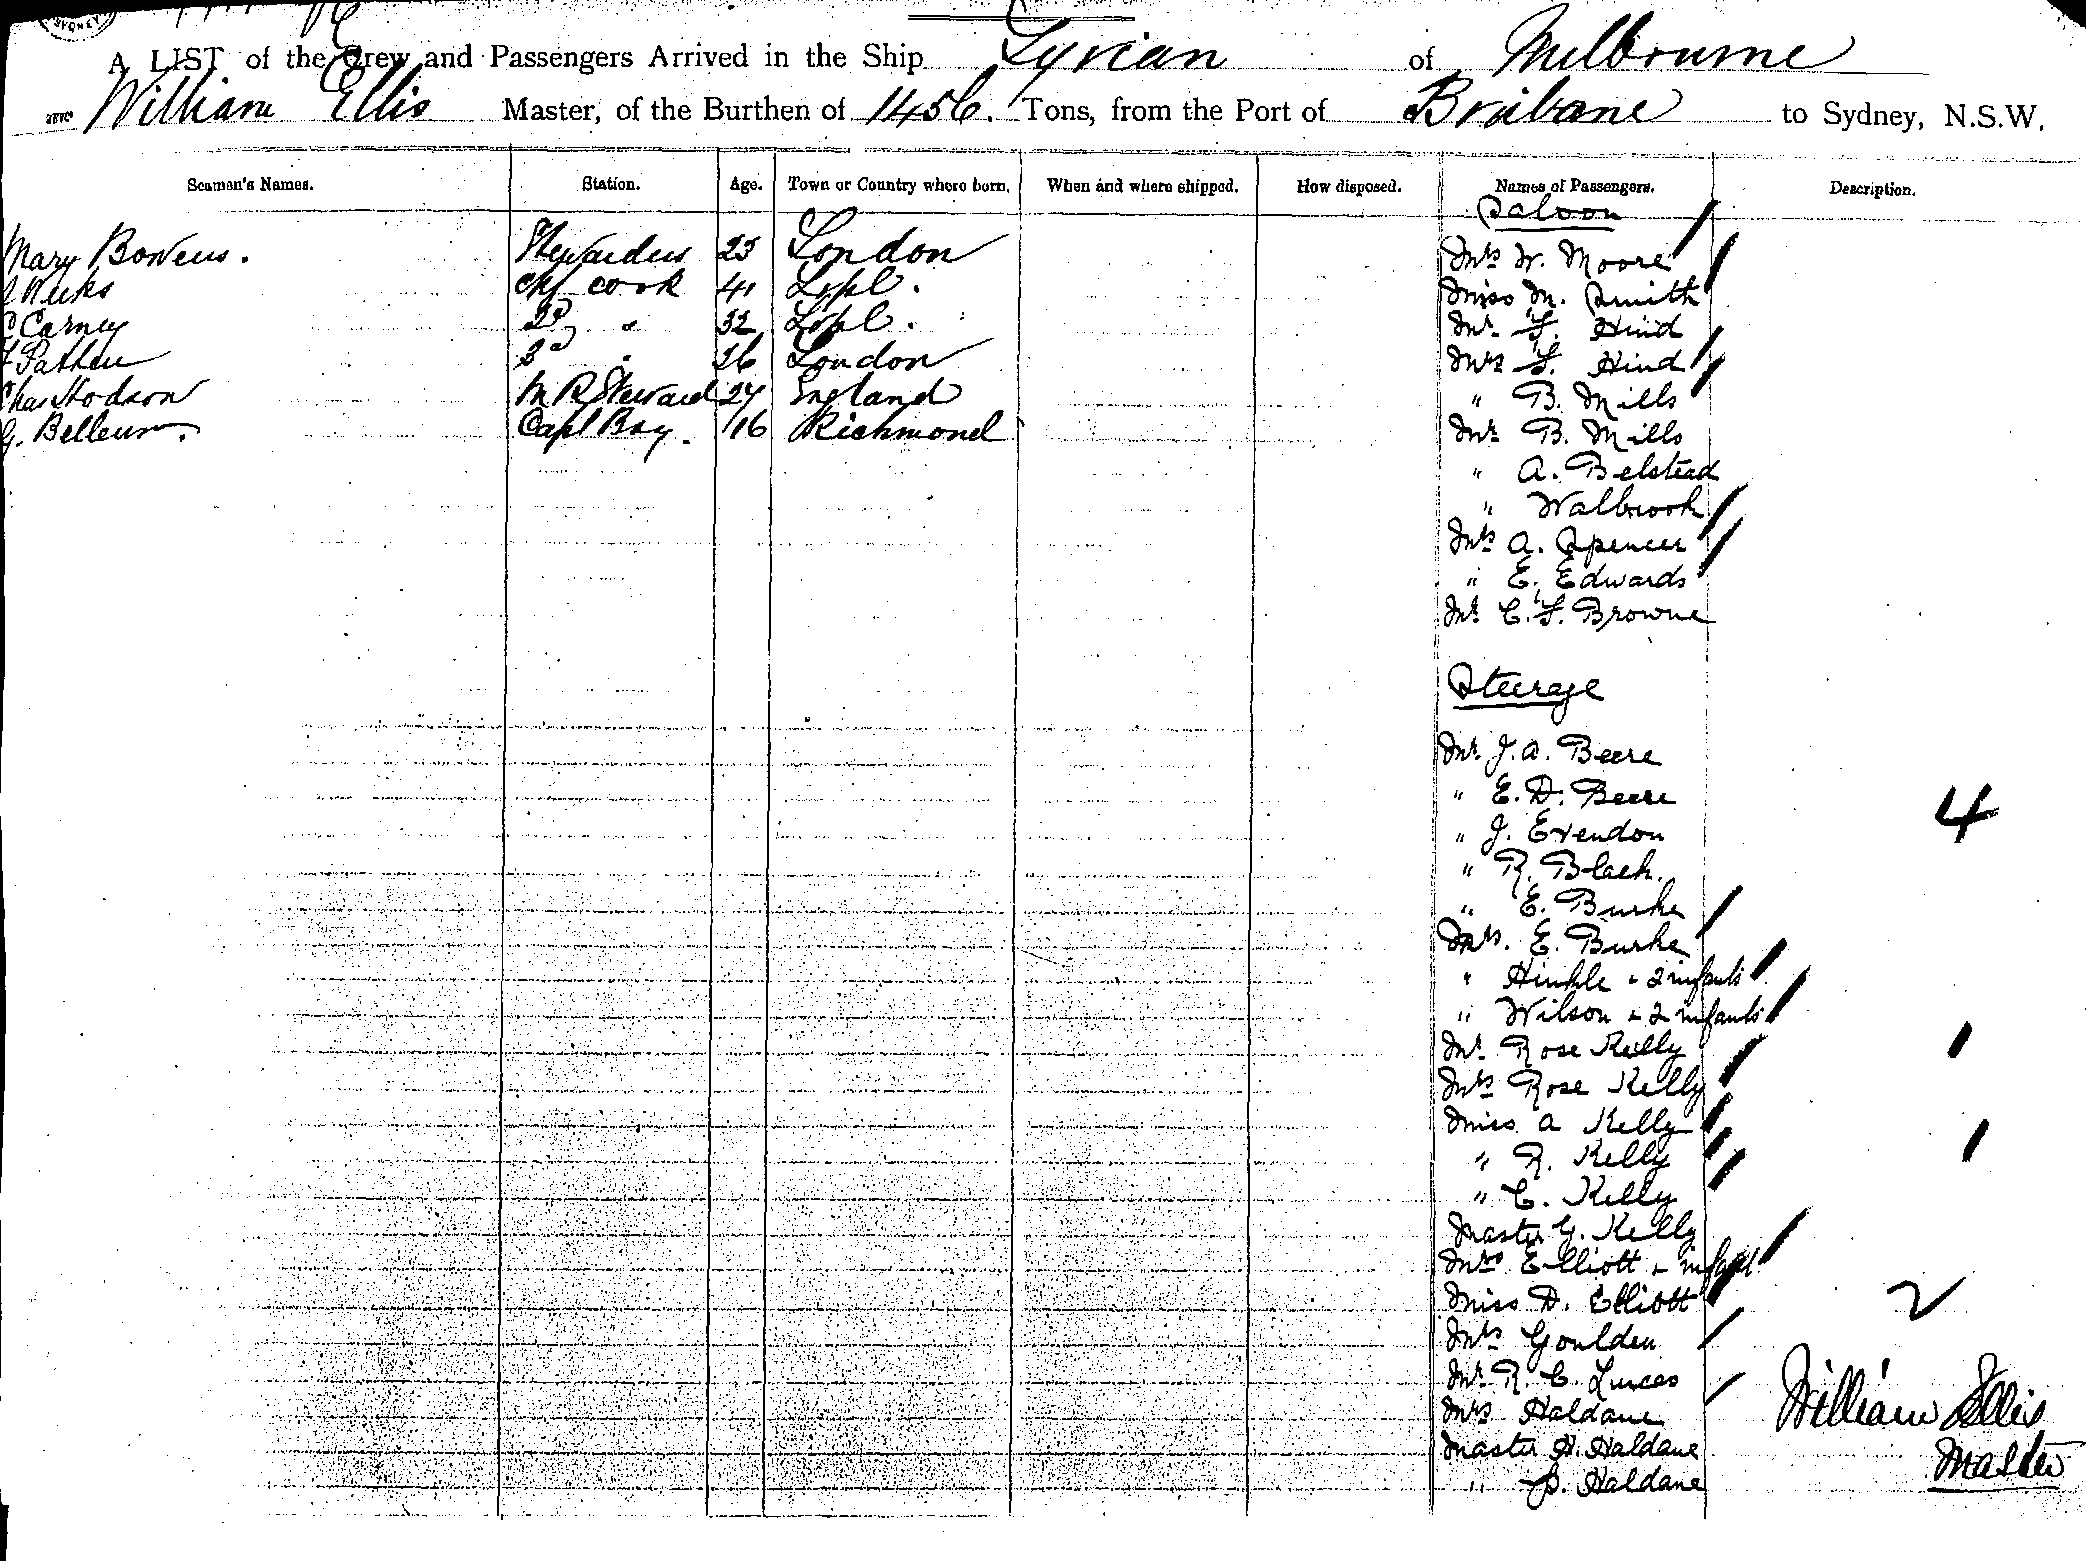 SYDNEY
A LIST of the Crew and Passengers Arrived in the Ship Tyrian of Melbourne
William Ellis Master, of the Burthen of 1456. Tons, from the Port of Brisbane to Sydney, N.S.W.
Seamen's Names. Station. Age. Town or Country where born. When and where shipped. How disposed. Names of Passengers. Description.
Saloon
Mary Bowens. Stewardess 23 London Mrs W. Moore
Weeks Chf cook 41 Lpl. Miss M. Smith
Carney 2d " 32 Lpl. Mr F. Hind
3d " 26 London Mrs F. Hind
Chas Hodson M R Steward 27 England " B. Mills
G. Capt Boy. 16 Richmond Mr B. Mills
" A. Belstead
" Walbrook
Mrs A. Spencer
" E. Edwards
Mr C. F. Browne
Steerage
Mr J. A. Beere
" E. D. Beere
4
" J. Evendon
" R. Black.
" E. Burke
Mrs. E. Burke
" Hinkle & 2 infants
" Wilson & 2 infants
Mr Rose Kelly
Mrs Rose Kelly
Miss A Kelly
" R. Kelly
" C. Kelly
Master G. Kelly
Mrs Elliott & infant
Miss D. Elliott
2
Mrs Goulden
Mr R. C. Lucas
Mrs Haldane
William Ellis
Master H. Haldane
Master
" Haldane